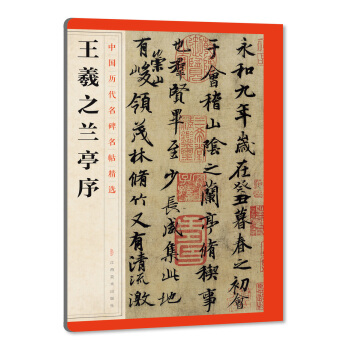 王羲之兰亭序
中国历代名碑名帖精选
永和九年歲在癸丑暮春之初會
于會稽山陰之蘭亭脩稧事
也羣賢畢至少長咸集此地
有崇山峻領茂林脩竹又有清流激